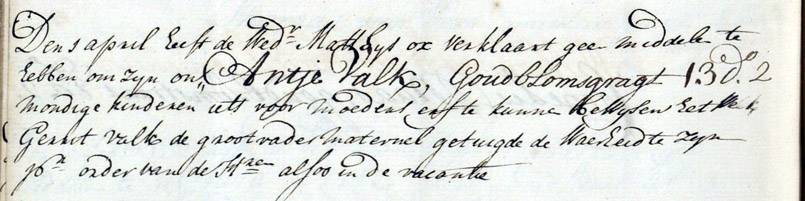 Den 5 april heeft de Wedr. Matthys ox verklaart geen middelen te
hebben om zyn on„ Antje Valk, Goudblomsgragt 13 d. 2
mondige kinderen iets voor moeders erfte kunne bewysen het welk
Gerrit Valk de grootvader maternel getuigde de Waerheid te zyn
pr. order van de Hren alsoo in de vacantie